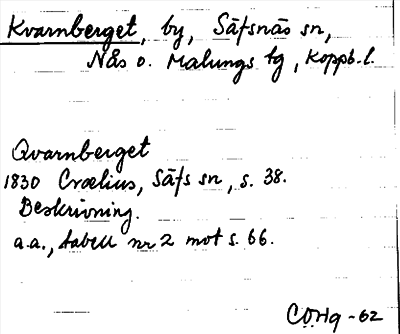 Kvarnberget, by, Säfsnäs sn,
Nås o. Malungs tg, Koppb.l.
Qvarnberget
1830 Crælius, Säfs sn, s. 38.
Beskrivning.
a.a., tabell nr 2 mot s. 66.